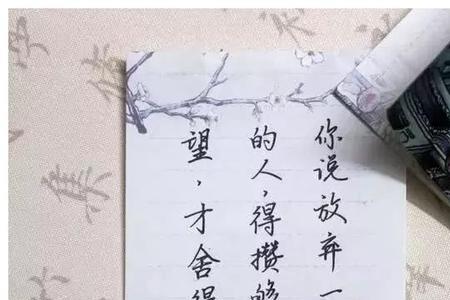 你说放弃一
的人，得攒够
望，才舍得